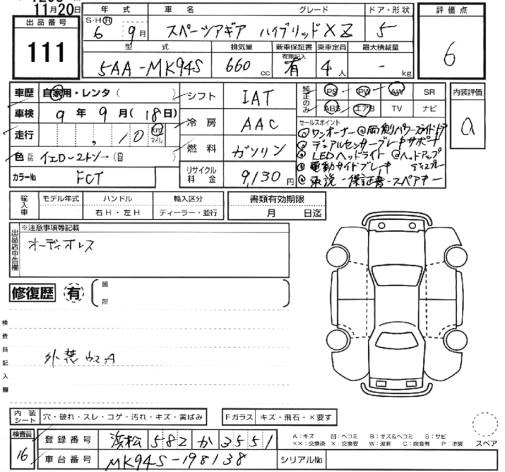 11月20日
出品番号
111
年式 車名 グレード ドア・形状
S・H・R 6 9月 スペーシアギア ハイブリッドXZ 5
型式 排気量 新車保証書 乗車定員 最大積載量
5AA-MK94S 660cc 有 4人 - kg
評価点
6
車歴 自家用・レンタ( )
車検 9年 9月(18日)
走行 , 10 km マイル
色 イエロー2トン→(
カラーNo. FCT
シフト IAT
冷房 AAC
燃料 ガソリン
リサイクル料金 9,130円
純正のみ PS PW AW SR
ABS エアB TV ナビ
セールスポイント
◎ワンオーナー ◎両側パワースライドドア
◎デュアルセンサーブレーキサポート
◎LEDヘッドライト ◎ヘッドアップディスプレー
◎電動サイドブレーキ
◎取説・保証書・スペアキー
内装評価
a
輸入車 モデル年式 ハンドル 輸入区分
右H・左H ディーラー・並行
書類有効期限
月 日迄
出品店申告欄
※注意事項等記載
オーディオレス
修復歴 有
検査員記入欄
外装ウスA
内装シート 穴・破れ・スレ・コゲ・汚れ・キズ・黄ばみ
Fガラス キズ・飛石・×要す
A:キズ U:ヘコミ B:キズ&ヘコミ S:サビ
スペア
検査員
16
登録番号 浜松 582 か 3551
車台番号 MK94S-198138
シリアルNo.